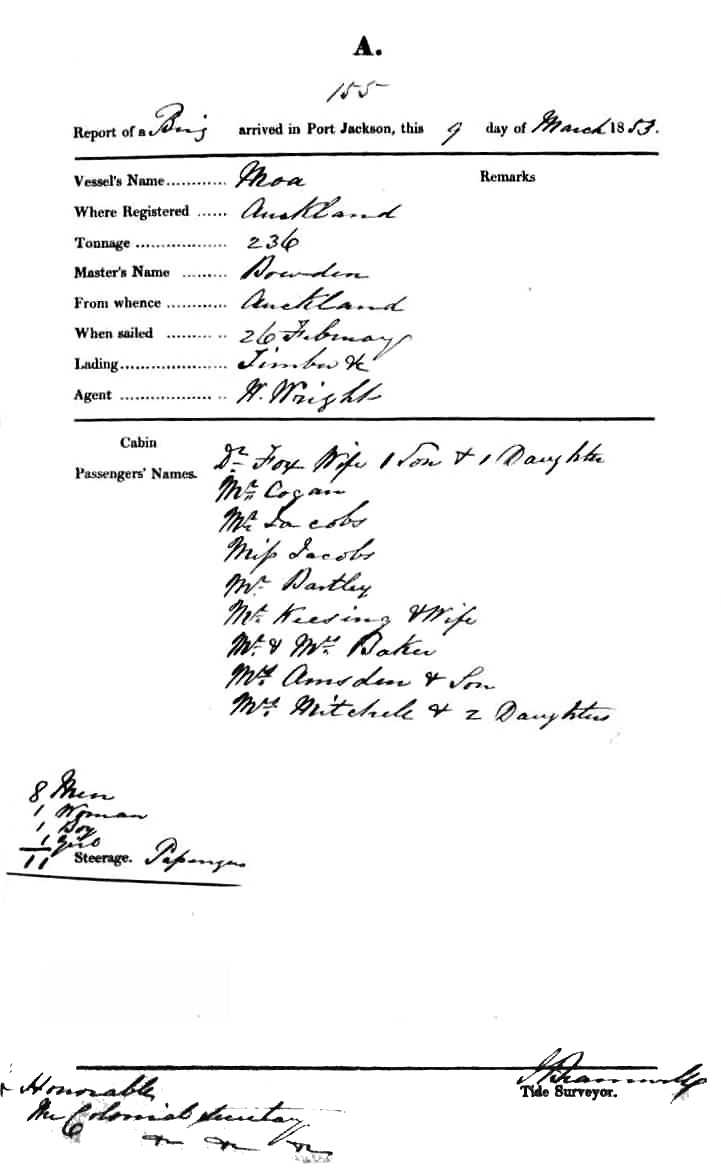 A.
155
Report of a Brig arrived in Port Jackson, this 9 day of March 1853.
Vessel's Name............ Moa Remarks
Where Registered ...... Auckland
Tonnage .................. 236
Master's Name ......... Bowden
From whence ............ Auckland
When sailed ............ 26 February
Lading..................... Timber &c
Agent ..................... W. Wright
Cabin
Passengers' Names. Dr. Fox Wife 1 Son & 1 Daughter
Mr. Cogan
Mr. Jacobs
Miss Jacobs
Mr. Bartley
Mr. Keesing & Wife
Mr. & Mrs. Baker
Mrs. Amsden & Son
Mrs. Mitchell & 2 Daughters
8 Men
1 Woman
1 Boy
1 Girl
11 Steerage. Passengers
Tide Surveyor.
Honorable
The Colonial Secretary